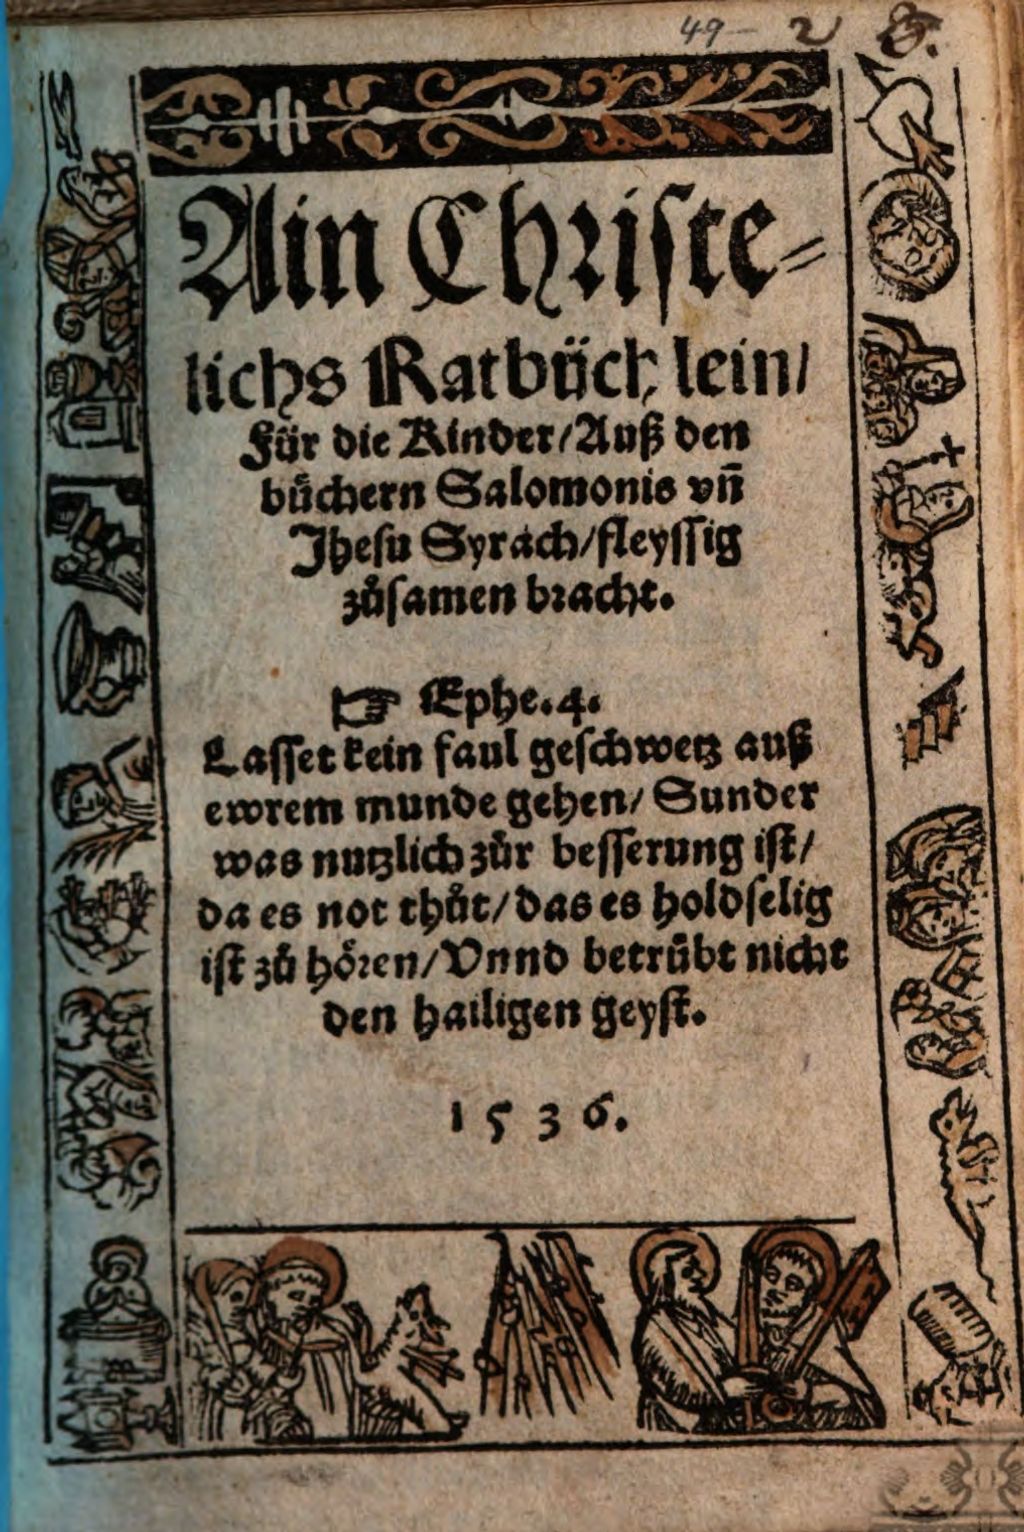 49– 2 8.
Ain Christe⸗
lichs Ratbüch lein/
Für die Kinder/Auß den
bůchern Salomonis vn̄
Jhesu Syrach/fleyssig
zůsamen bracht.
☞ Ephe.4.
Lasset kein faul geschwetz auß
ewrem munde gehen/ Sunder
was nutzlich zůr besserung ist/
da es not thůt/das es holdselig
ist zů hören/Vnnd betrübt nicht
den hailigen geyst.
1536.